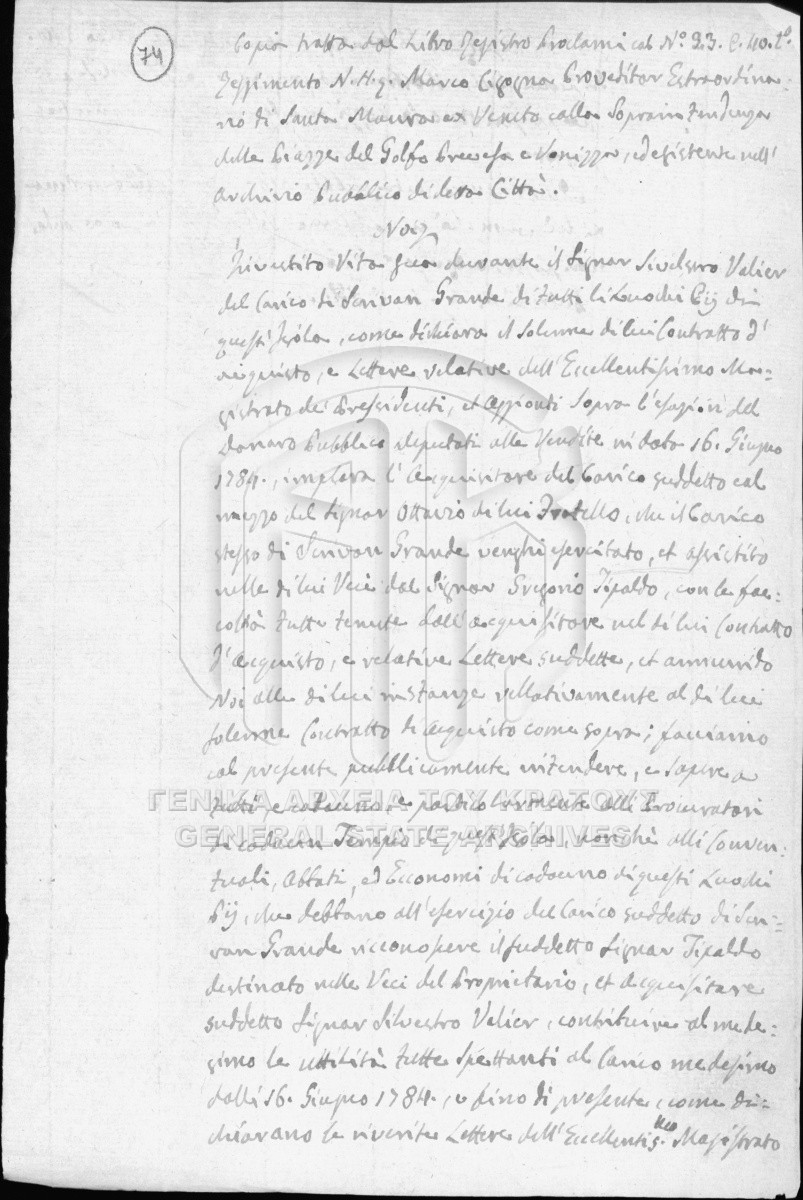 74
Copia tratta dal Libro Registro Proclami al N.º 23. C. 40. t.º
Reggimento N. H. Marco Cigogna Proveditor Estraordina=
rio di Santa Maura ex Veneto colla Sopraintendenza
delle Piazze del Golfo Prevesa e Vonizza, edesistente nell'
Archivio Pubblico di detta Città.
Noi
Investito Vita sua durante il Signor Silvestro Valier
del Carico di Scrivan Grande di tutti li Luochi Pij di
quest'Isola, come dichiara il solenne di lui Contratto d'
acquisto, e Lettere relative dell'Eccellentissimo Ma=
gistrato de' Pressidenti, et Aggionti Sopra l'esazion del
Dannaro Pubblico deputati alle Vendite in data 16. Giugno
1784., implora l'Acquisitore del Carico suddetto col
mezzo del Signor Ottavio di lui Fratello, che il Carico
stesso di Scrivan Grande venghi esercitato, et assistito
nelle di lui Veci dal Signor Gregorio Tipaldo, con le fa=
coltà tutte tenute dall'acquisitore nel di lui Contratto
d'acquisto, e relative Lettere suddette, et annuindo
Noi alle di lui instanze rellativamente al di lui
solenne Contratto di acquisto come sopra; facciamo
col presente pubblicamente intendere, e sapere a
tutti, e cadauno, e particolarmente alli Procuratori
di cadaun Tempio di quest'Isola, nonchè alli Conven=
tuali, Abbati, ed Economi di cadauno di questi Luochi
Pij, che debbano all'esercizio del Carico suddetto di Scri=
van Grande riconoscere il suddetto Signor Tipaldo
destinato nelle Veci del Proprietario, et Acquisitore
suddetto Signor Silvestro Valier, contribuire al mede=
simo le uttilità tutte spettanti al Carico medesimo
dalli 16. Giugno 1784., e fino di presente, come di=
chiarano le riverite Lettere dell'Eccellentis.mo Magistrato
ΓΕΝΙΚΑ ΑΡΧΕΙΑ ΤΟΥ ΚΡΑΤΟΥΣ
GENERAL STATE ARCHIVES